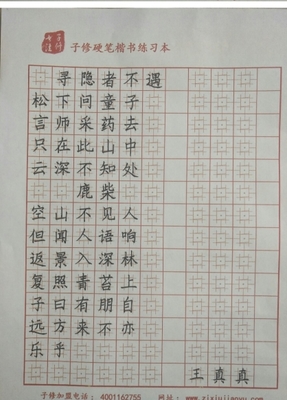 子修硬笔楷书练习本
寻隐者不遇
松下问童子
言师采药去
只在此山中
云深不知处
鹿柴
空山不见人
但闻人语响
返景入深林
复照青苔上
子曰有朋自
远方来不亦
乐乎
王真真
子修加盟电话：4001162755 网址：